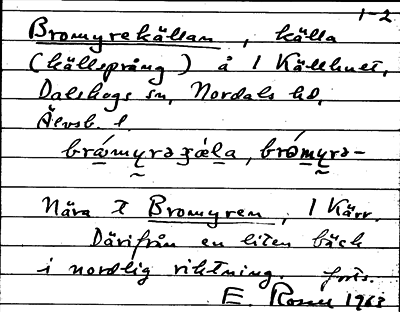 1-2
Bromyrekällan, källa
(källsprång) å 1 Källhult,
Dalskogs sn, Nordals hd,
Älvsb. l.
bråmyrə
Nära t Bromyren, 1 Kärr.
Därifrån en liten bäck
i nordlig riktning. forts.
E. Rosell 1963